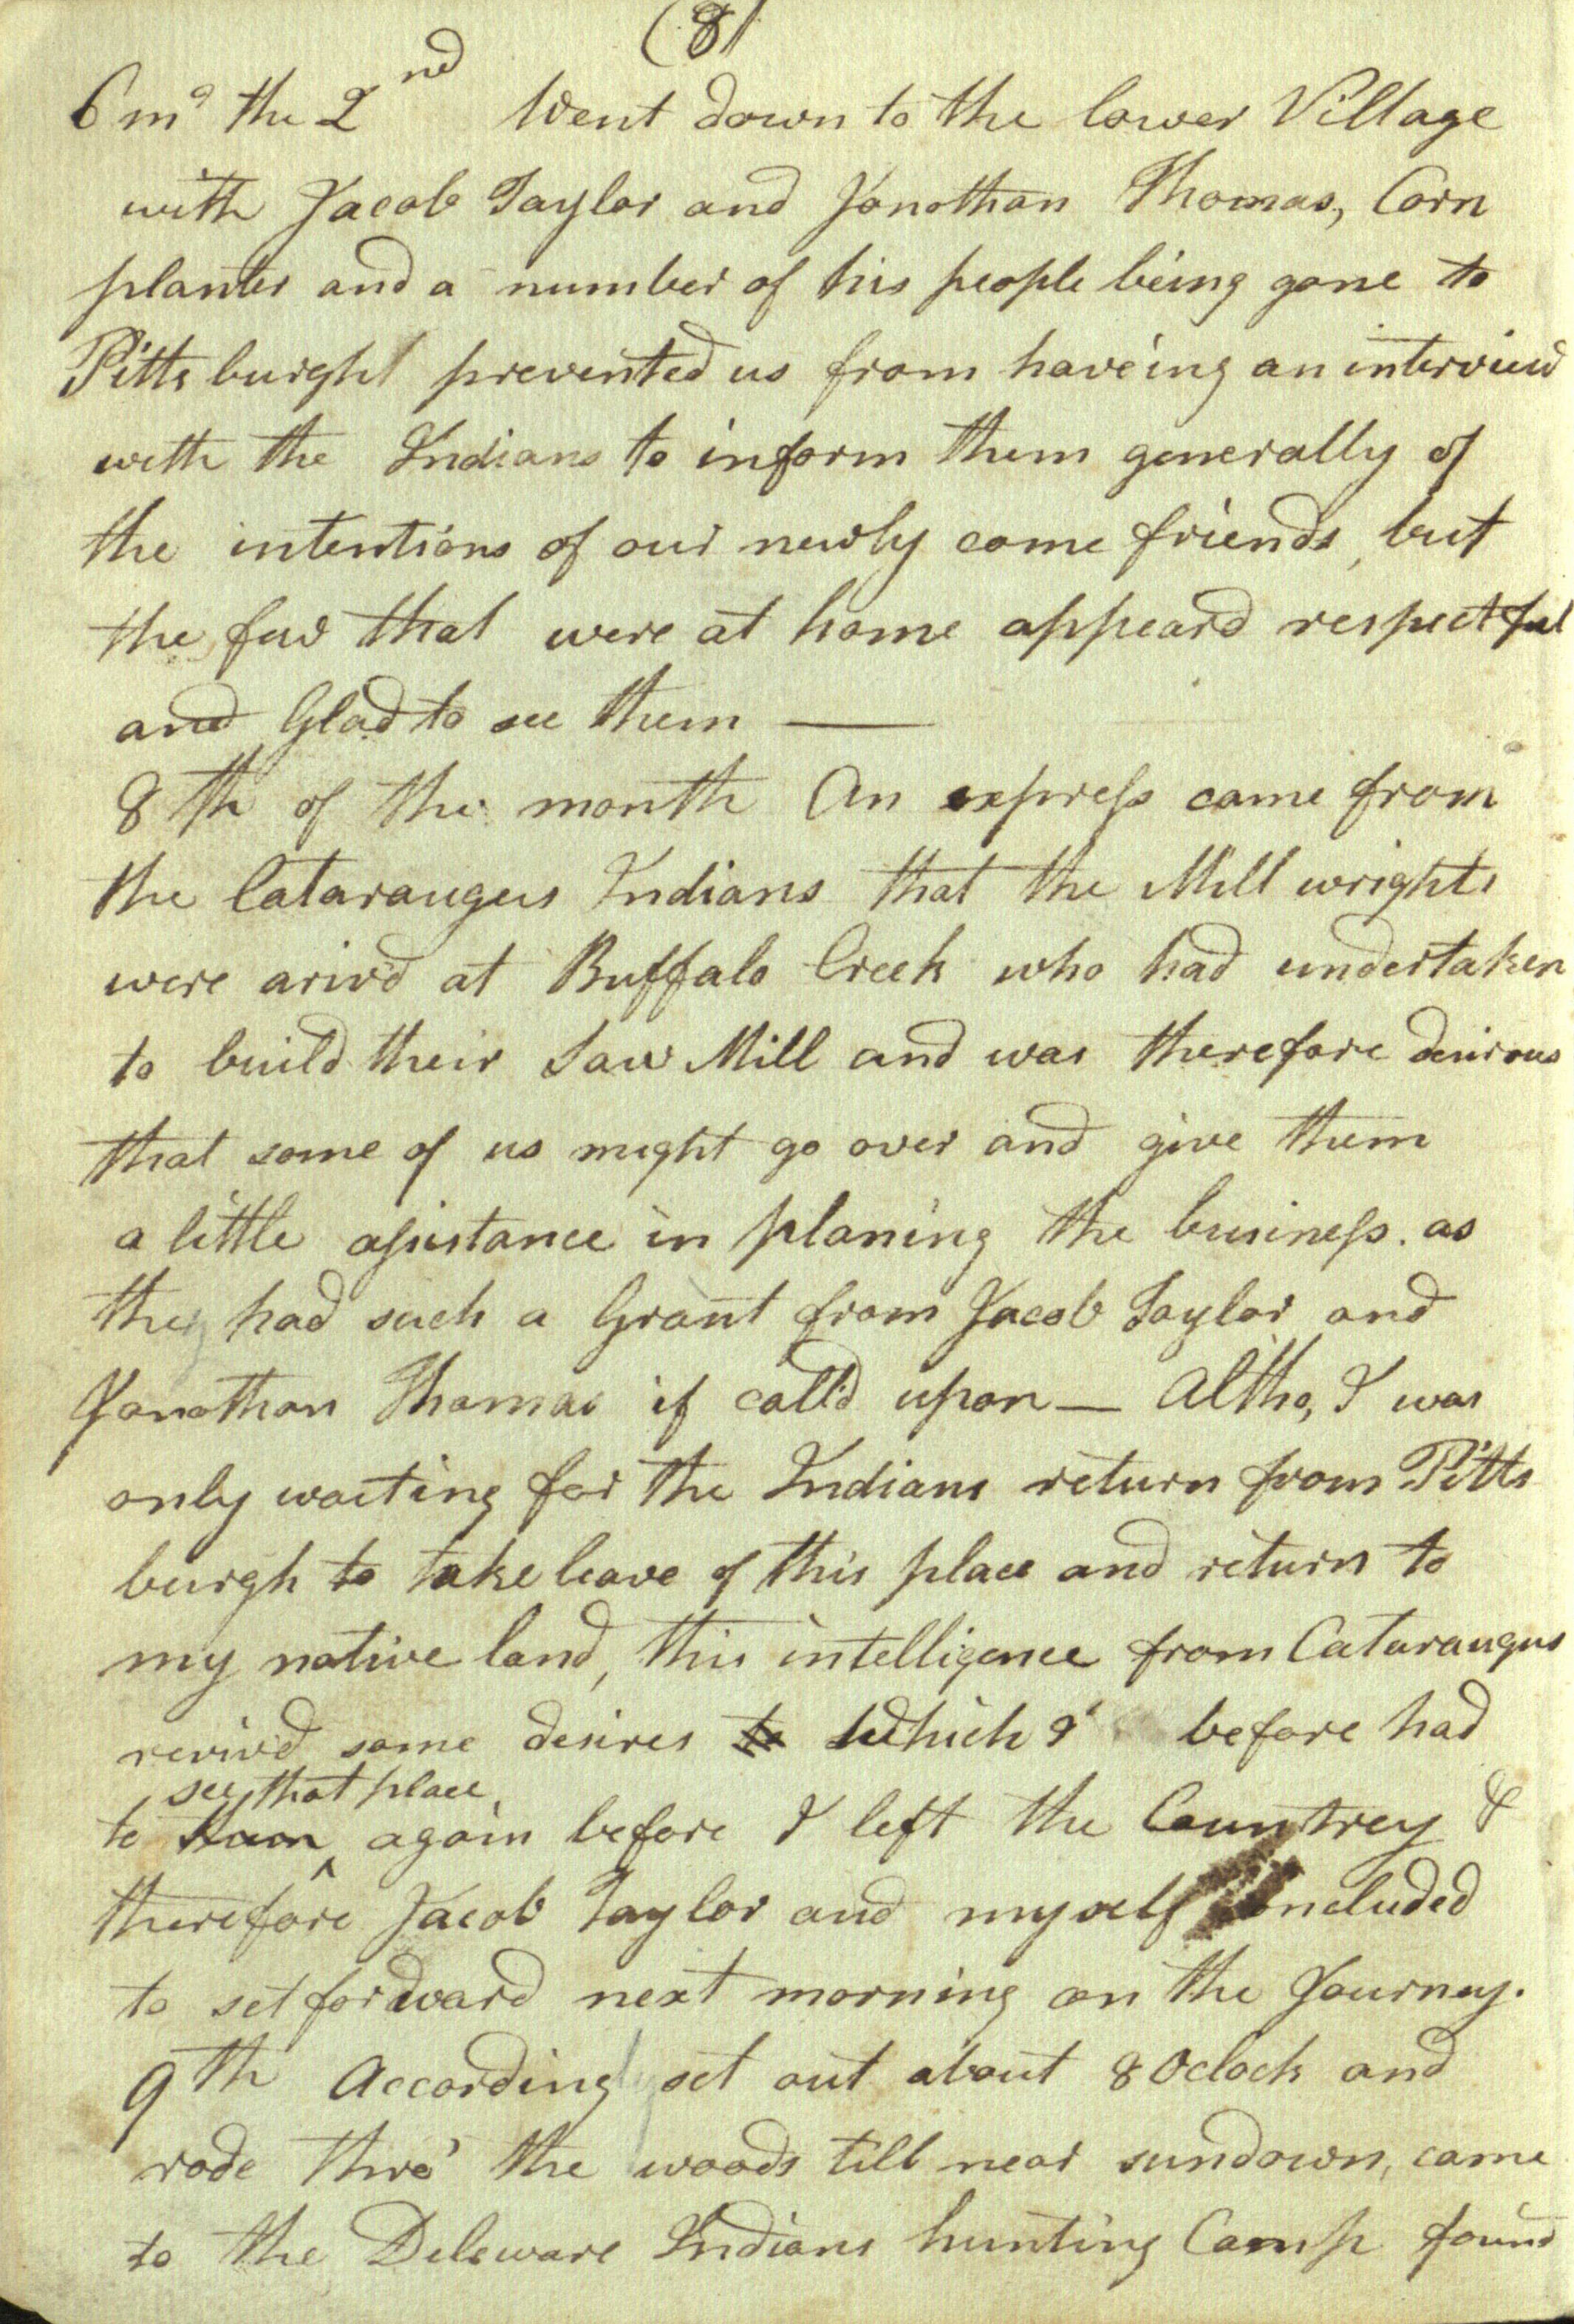 (8)
6 mo the 2nd Went down to the lower Village
with Jacob Taylor and Jonathan Thomas, Corn
planter and a number of his people being gone to
Pitts burgh prevented us from haveing an interview
with the Indians to inform them generally of
the intentions of our newly come friends, but
the few that were at home appeard respectful
and Glad to see them —
8th of the month An express came from
the Cataraugus Indians that the Mill wrights
were arivd at Buffalo Creek who had undertaken
to build their Saw Mill and was therefore desirous
that some of us might go over and give them
a little assistance in planing the business. as
they had such a Grant from Jacob Taylor and
Jonathan Thomas if calld upon — Altho, I was
only waiting for the Indians return from Pitts
burgh to take leave of this place and return to
my native land, this intelligence from Cataraugus
revivd some desires to which I before had
see that place
to again before I left the Countrey &
therefore Jacob Taylor and myself concluded
to set forward next morning on the Journey.
9th Accordingly set out about 8 Oclock and
rode thro' the woods till near sundown, came
to the Deleware Indians hunting Camp found